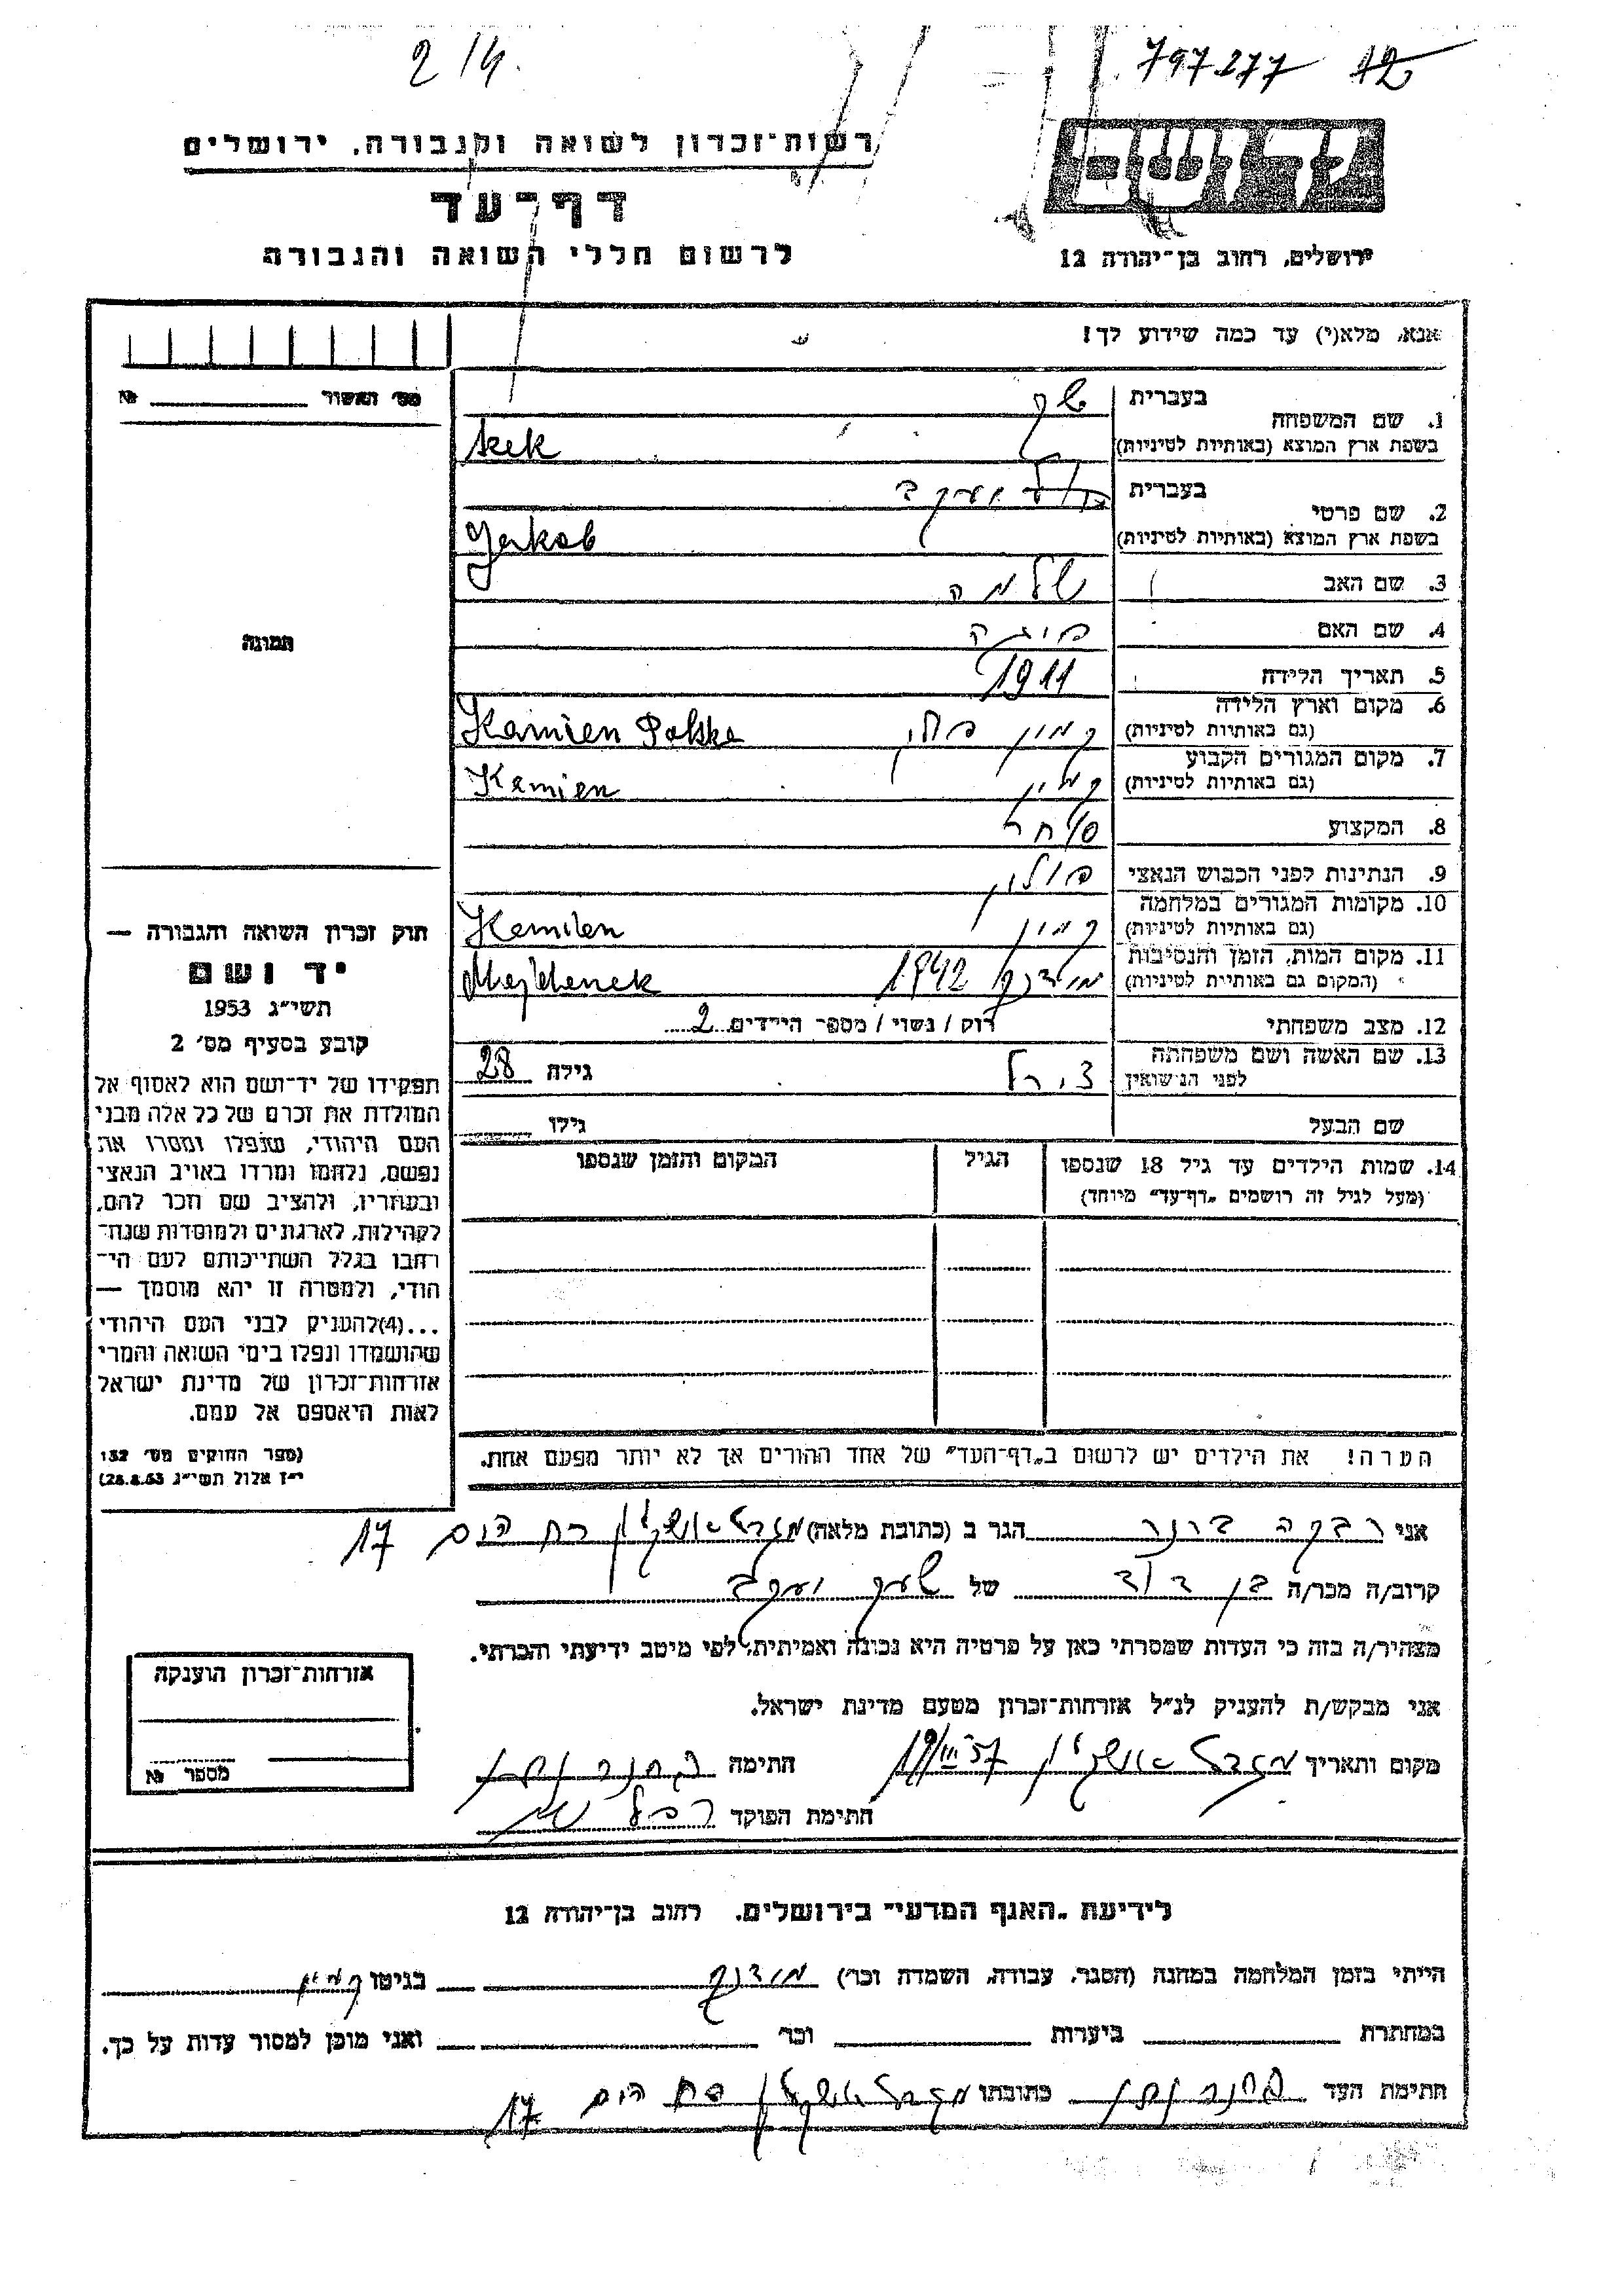 2/4.
797277 12
רשות־זכרון לשואה ולגבורה, ירושלים
דף־עד
לרשום חללי השואה והגבורה
יד ושם
ירושלים, רחוב בן־יהודה 12
אנא, מלא(י) עד כמה שידוע לך!
מס׳ האשור № 
1. שם המשפחה
בעברית
בשפת ארץ המוצא (באותיות לטיניות)
2. שם פרטי
בעברית יעקב
בשפת ארץ המוצא (באותיות לטיניות) Jakob
3. שם האב שלמה
4. שם האם
5. תאריך הלידה 1911
6. מקום וארץ הלידה
(גם באותיות לטיניות) קמין פולין Kamien Polska
7. מקום המגורים הקבוע
(גם באותיות לטיניות) קמין Kamien
8. המקצוע סוחר
9. הנתינות לפני הכבוש הנאצי פולין
10. מקומות המגורים במלחמה
(גם באותיות לטיניות) קמין Kamien
11. מקום המות, הזמן והנסיבות
(המקום גם באותיות לטיניות) מידנק 1942 Majdanek
12. מצב משפחתי רוק / נשוי / מספר הילדים 2
13. שם האשה ושם משפחתה
לפני הנישואין גילה 28
שם הבעל גילו
14. שמות הילדים עד גיל 18 שנספו
(מעל לגיל זה רושמים „דף־עד״ מיוחד)
הגיל
המקום והזמן שנספו
הערה! את הילדים יש לרשום ב„דף־העד״ של אחד ההורים אך לא יותר מפעם אחת.
תמונה
חוק זכרון השואה והגבורה —
יד ושם
תשי״ג 1953
קובע בסעיף מס׳ 2
תפקידו של יד־ושם הוא לאסוף אל
המולדת את זכרם של כל אלה מבני
העם היהודי, שנפלו ומסרו את
נפשם, נלחמו ומרדו באויב הנאצי
ובעוזריו, ולהציב שם וזכר להם,
לקהילות, לארגונים ולמוסדות שנח־
רבו בגלל השתייכותם לעם הי־
הודי, ולמטרה זו יהא מוסמך —
...(4)להעניק לבני העם היהודי
שהושמדו ונפלו בימי השואה והמרי
אזרחות־זכרון של מדינת ישראל
לאות היאספם אל עמם.
(ספר החוקים מס׳ 132
י״ז אלול תשי״ג 28.8.53)
אני רבקה הגר ב (כתובת מלאה) מגדל אשקלון רח הים 17
קרוב/ה מכר/ה בן דוד של יעקב
מצהיר/ה בזה כי העדות שמסרתי כאן על פרטיה היא נכונה ואמיתית, לפי מיטב ידיעתי והכרתי.
אני מבקש/ת להעניק לנ״ל אזרחות־זכרון מטעם מדינת ישראל.
מקום ותאריך מגדל אשקלון 19/III 57 חתימה
חתימת הפוקד
אזרחות־זכרון הוענקה
מספר №
לידיעת „האגף המדעי״ בירושלים, רחוב בן־יהודה 12
הייתי בזמן המלחמה במחנה (הסגר, עבודה, השמדה וכו׳) מידנק בגיטו קמין
במחתרת ביערות וכו׳ ואני מוכן למסור עדות על כך.
חתימת העד כתובתו מגדל אשקלון רח הים 17